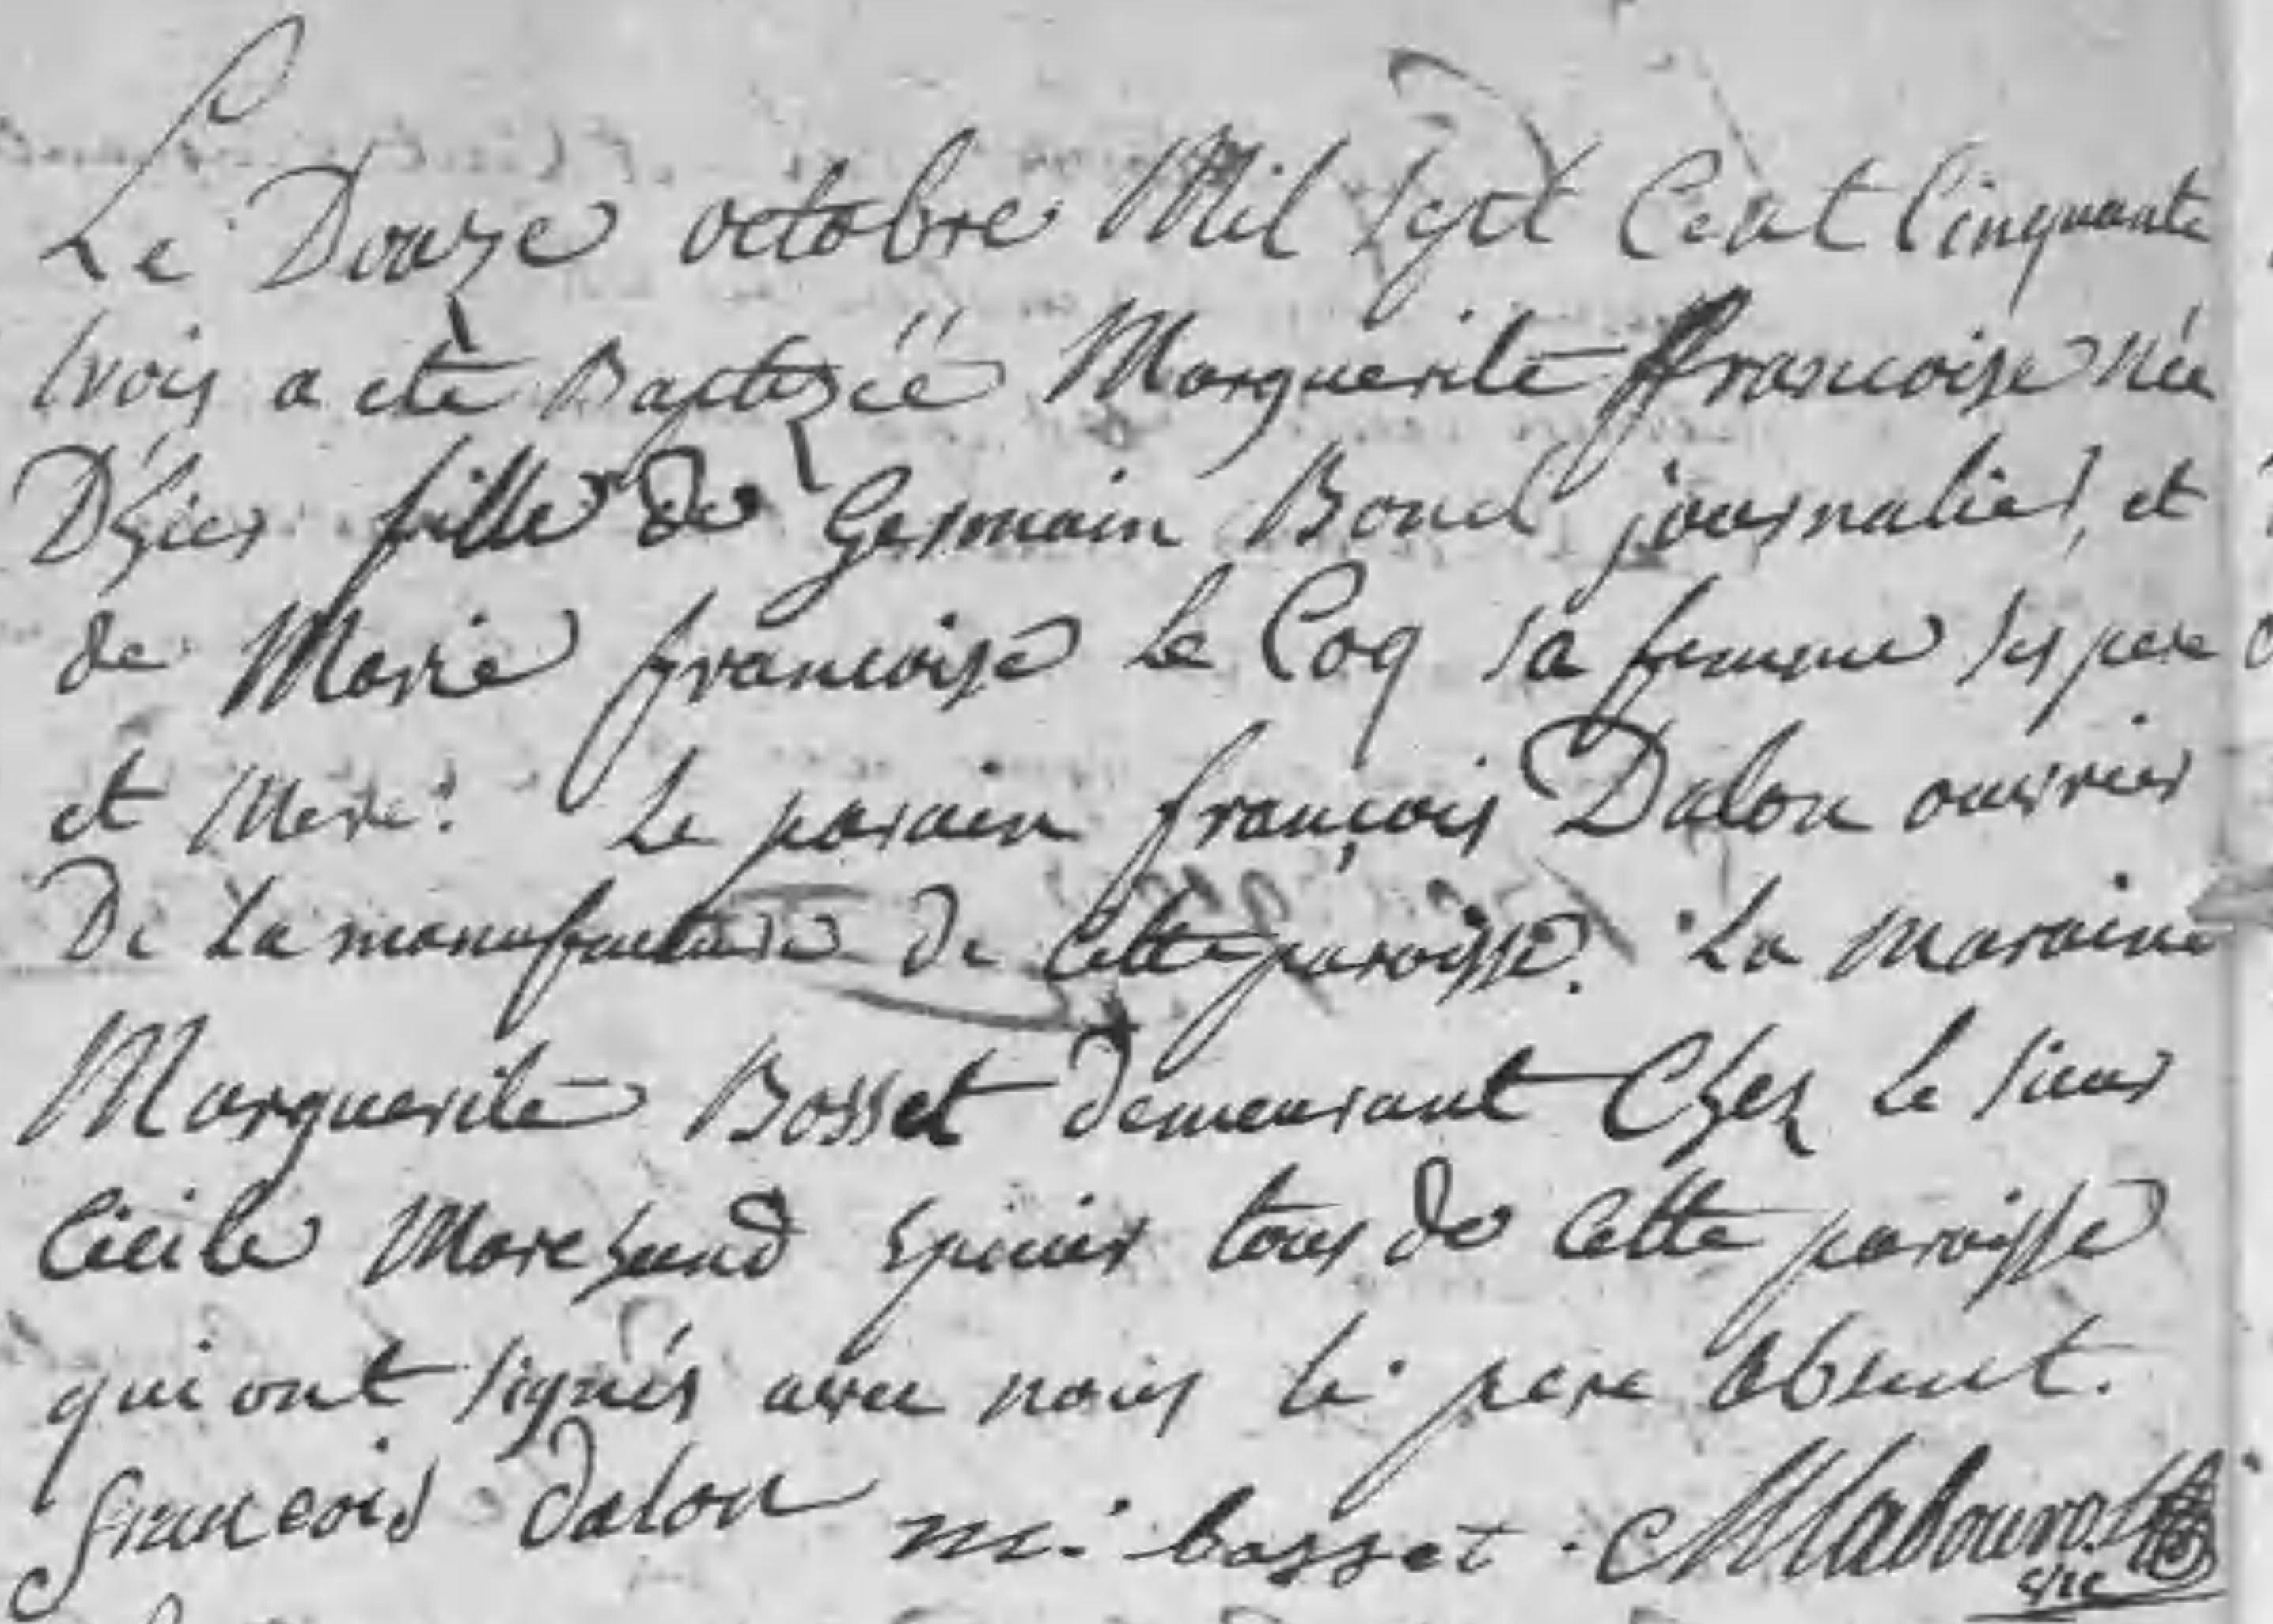 Le Douze octobre Mil Sept Cent Cinquante
trois a eté Baptisée Marguerite ffrancoise née
D'hier fille de Germain Bouel journalier, et
de Marie francoise le Coq sa femme ses pere
et Mere. Le parain françois Dalon ouvrier
De La manufacture de Cette paroisse. La maraine
Marguerite Bosset demeurant Chez le sieur
Cécile Marchand Epicier tous de Cette paroisse
qui ont signés avec nous le pere Absent.
francois dalon m. bosset.